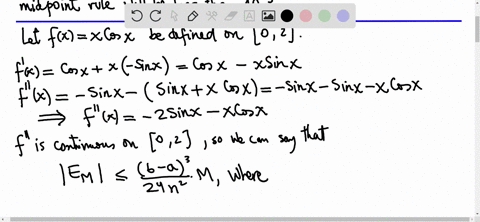 midpoint rule
Let f(x) = x Cosx be defined on [0, 2].
f'(x) = Cosx + x(-Sinx) = Cosx - xSinx
f''(x) = -Sinx - (Sinx + x Cosx) = -Sinx - Sinx - x Cosx
⟹ f''(x) = -2Sinx - xCosx
f'' is continuous on [0, 2], so we can say that
|E_M| ≤ (b-a)³/24n² · M, where